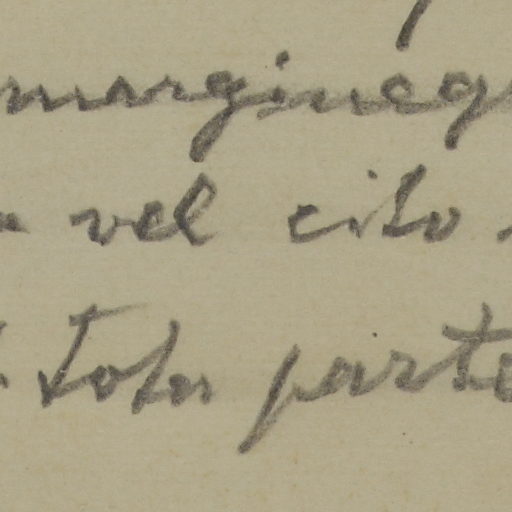 margineq
vel cito
tota parte